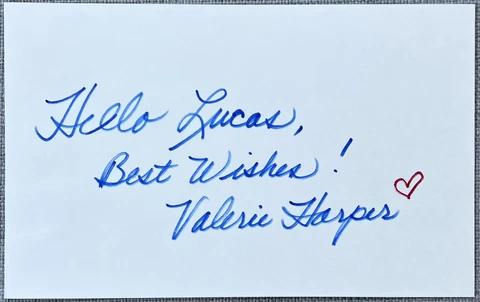 Hello Lucas,
Best Wishes!
Valerie Harper